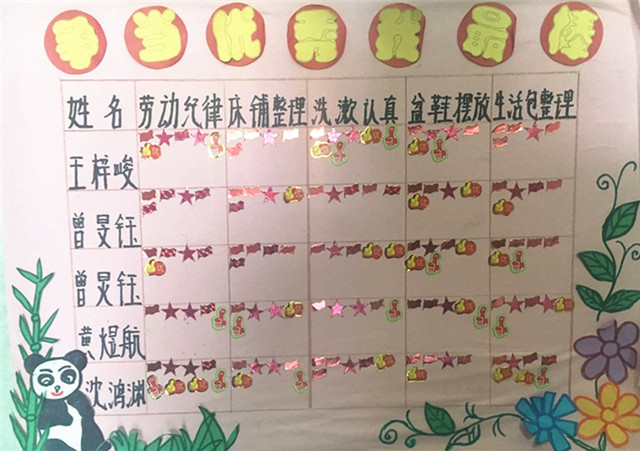 争当优秀我最棒
姓名 劳动纪律 床铺整理 洗漱认真 盆鞋摆放 生活包整理
王梓峻
曾旻钰
曾炅钰
黄煜航
沈鸿渊